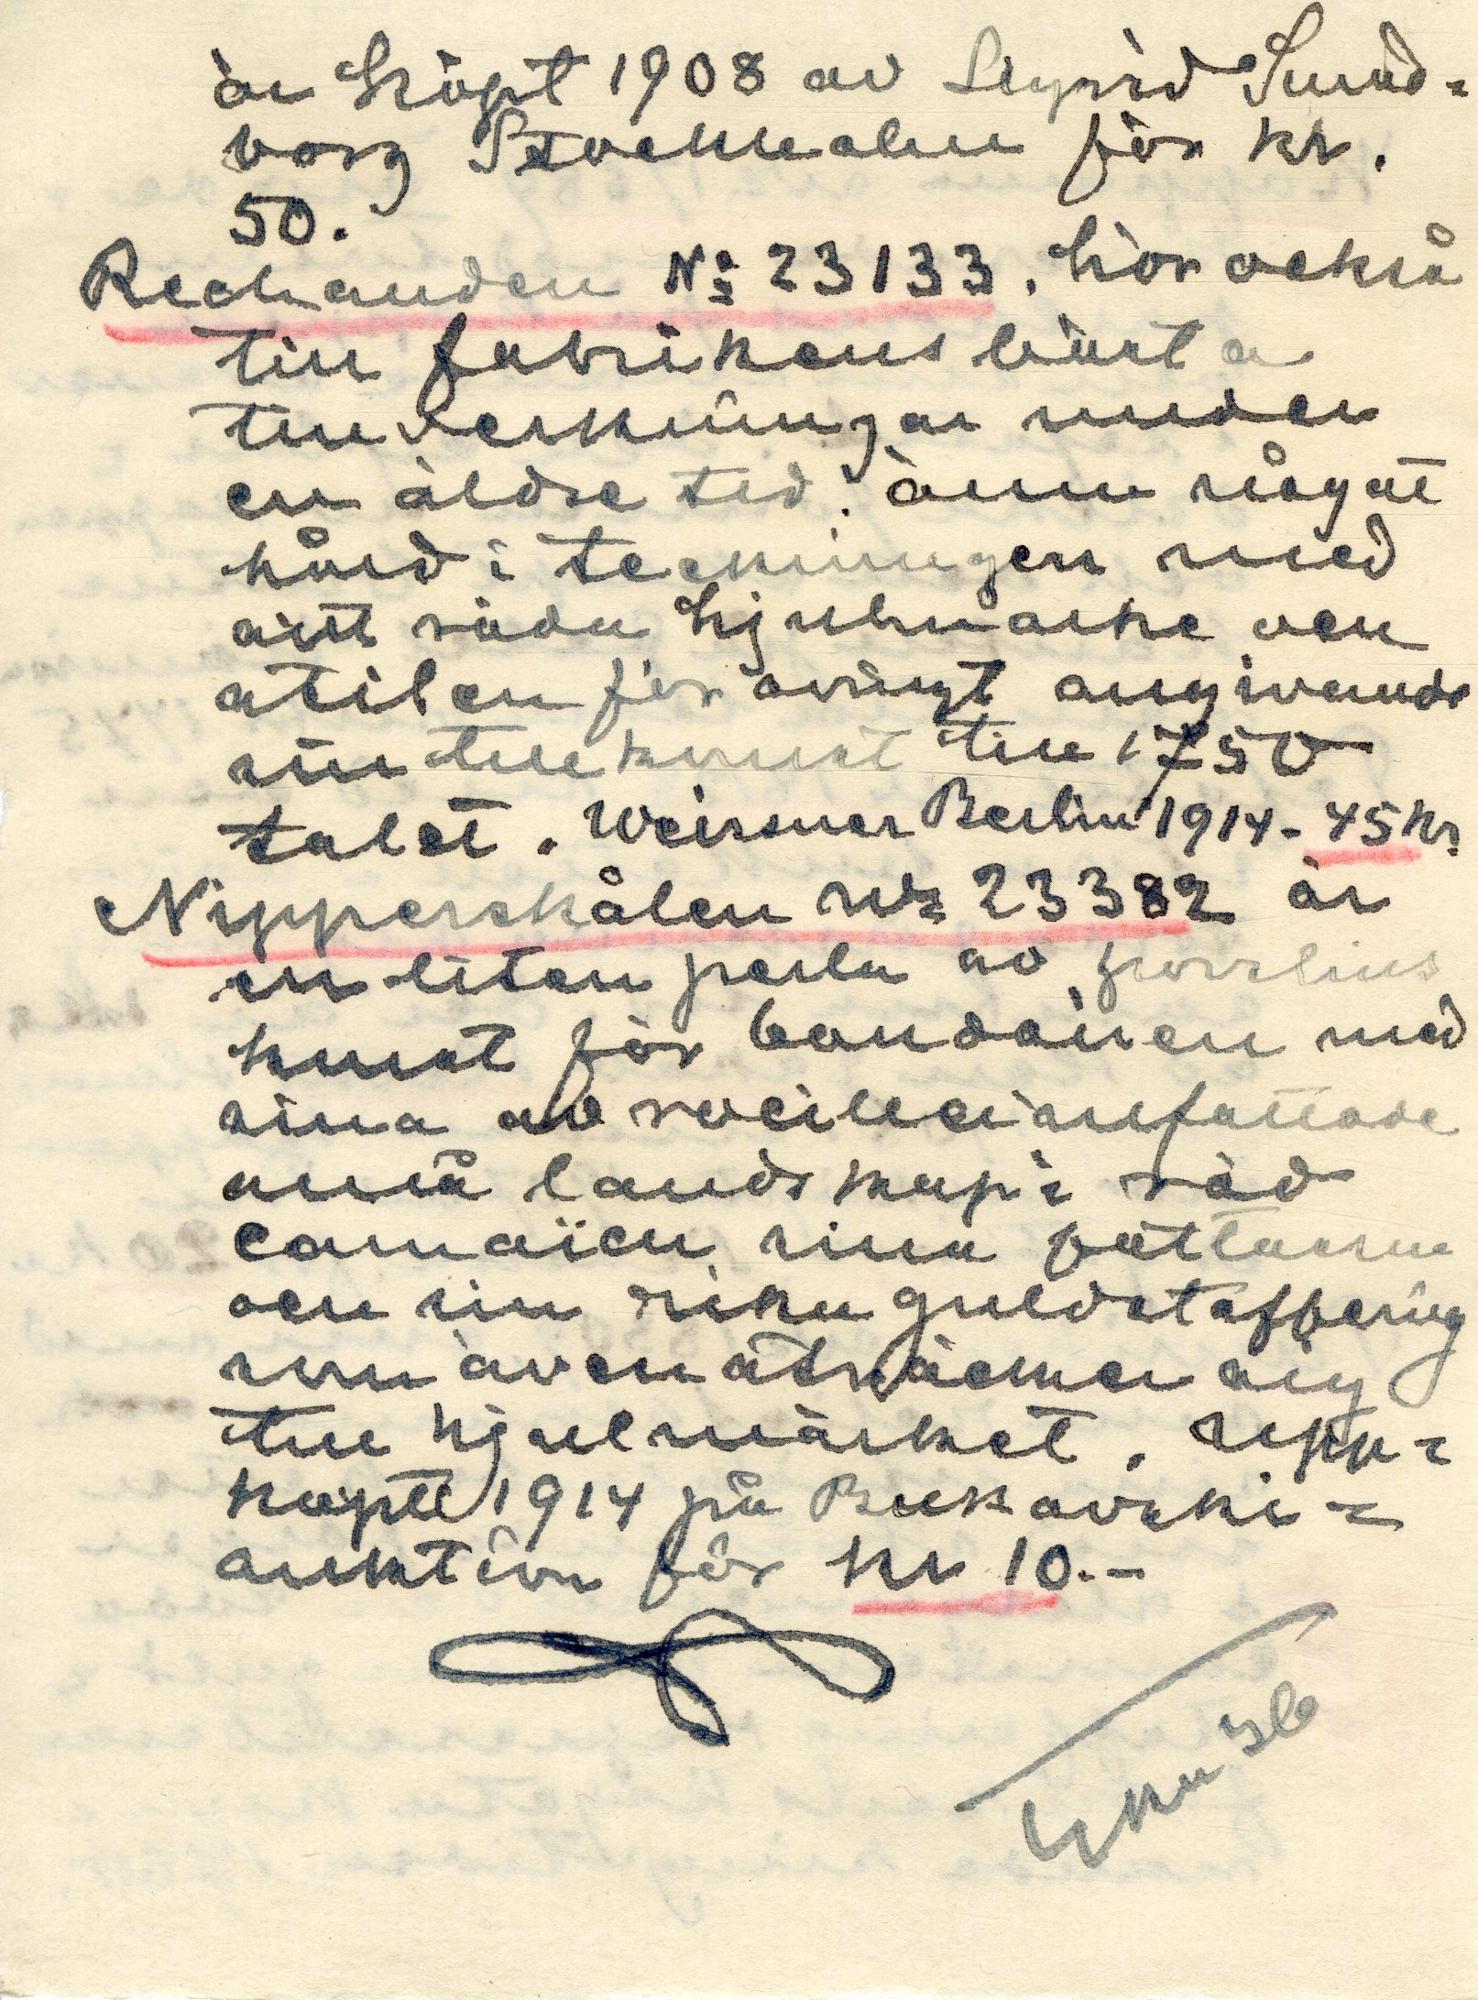 är köpt 1908 av Sigrid Sund-
borg Stockholm för kr.
50.
Rechauden No 23133. hör också
till fabrikens bästa
tillverkningar under
en äldre tid, ännu något
hård i teckningen med
ett röda hjulmärke och
stilen för övrigt angivande
sin tillkomst till 1750
talet. Weissner Berlin 1914 - 45 kr.
Nipperskålen No 23382 är
en liten perla av porslins
konst för bandåren med
sina av rocilleri infattade
små landskap i röd
camaïeu, sina puttaerna
och sin rika guldstaffering
som även sträcker sig
till hjulmärket. Upp-
köpt 1914 på Bukowski-
auktion för kr 10.-